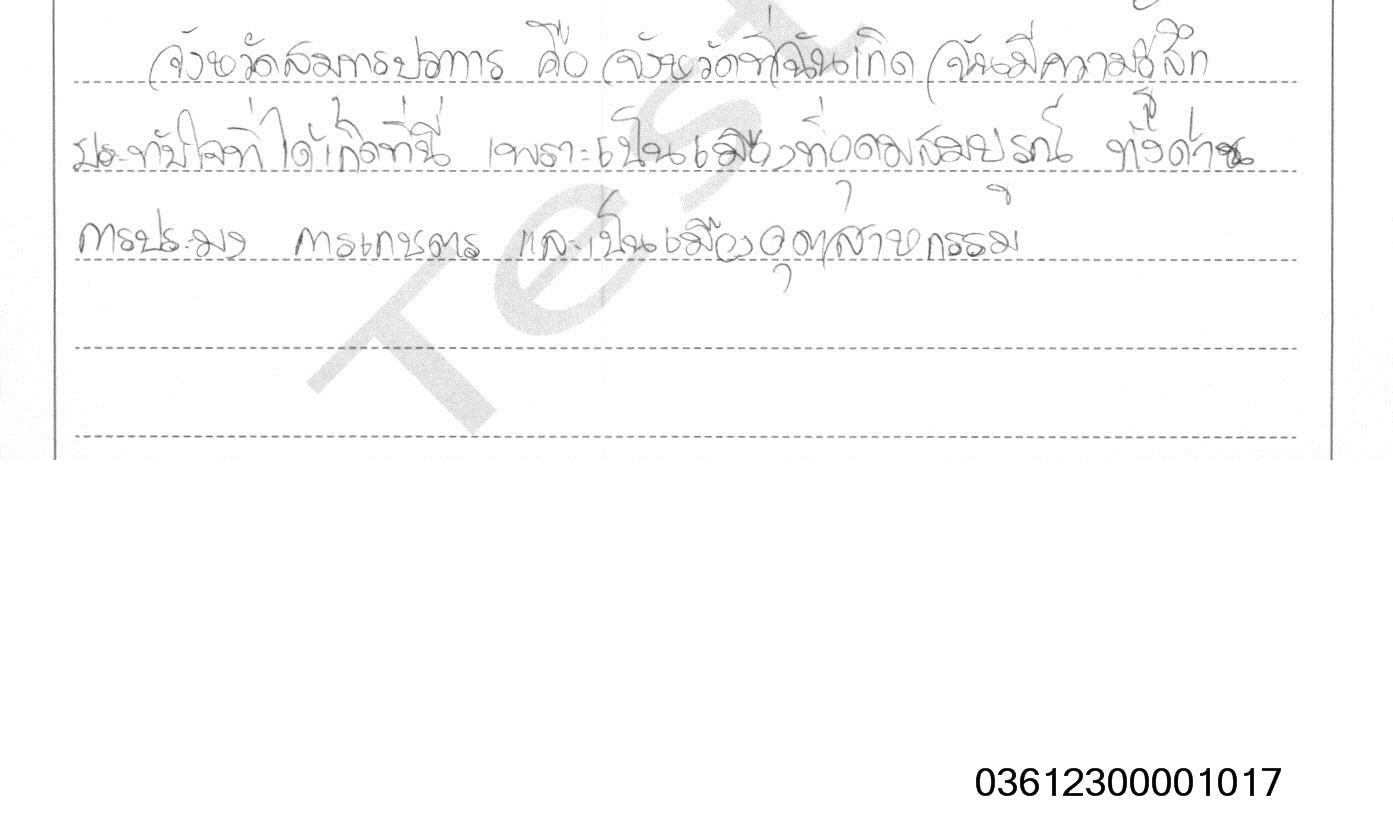 จังหวัดสมทรปราการ คือ จังหวัดที่ฉันเกิด ฉันมีความรู้สึก
ประทับใจที่ได้เกิดที่นี่ เพราะเป็นเมืองที่อุดมสมบูรณ์ ทั้งด้าน
การประมง การเกษตร และเป็นเมืองอุตสาหกรรม
Test
03612300001017